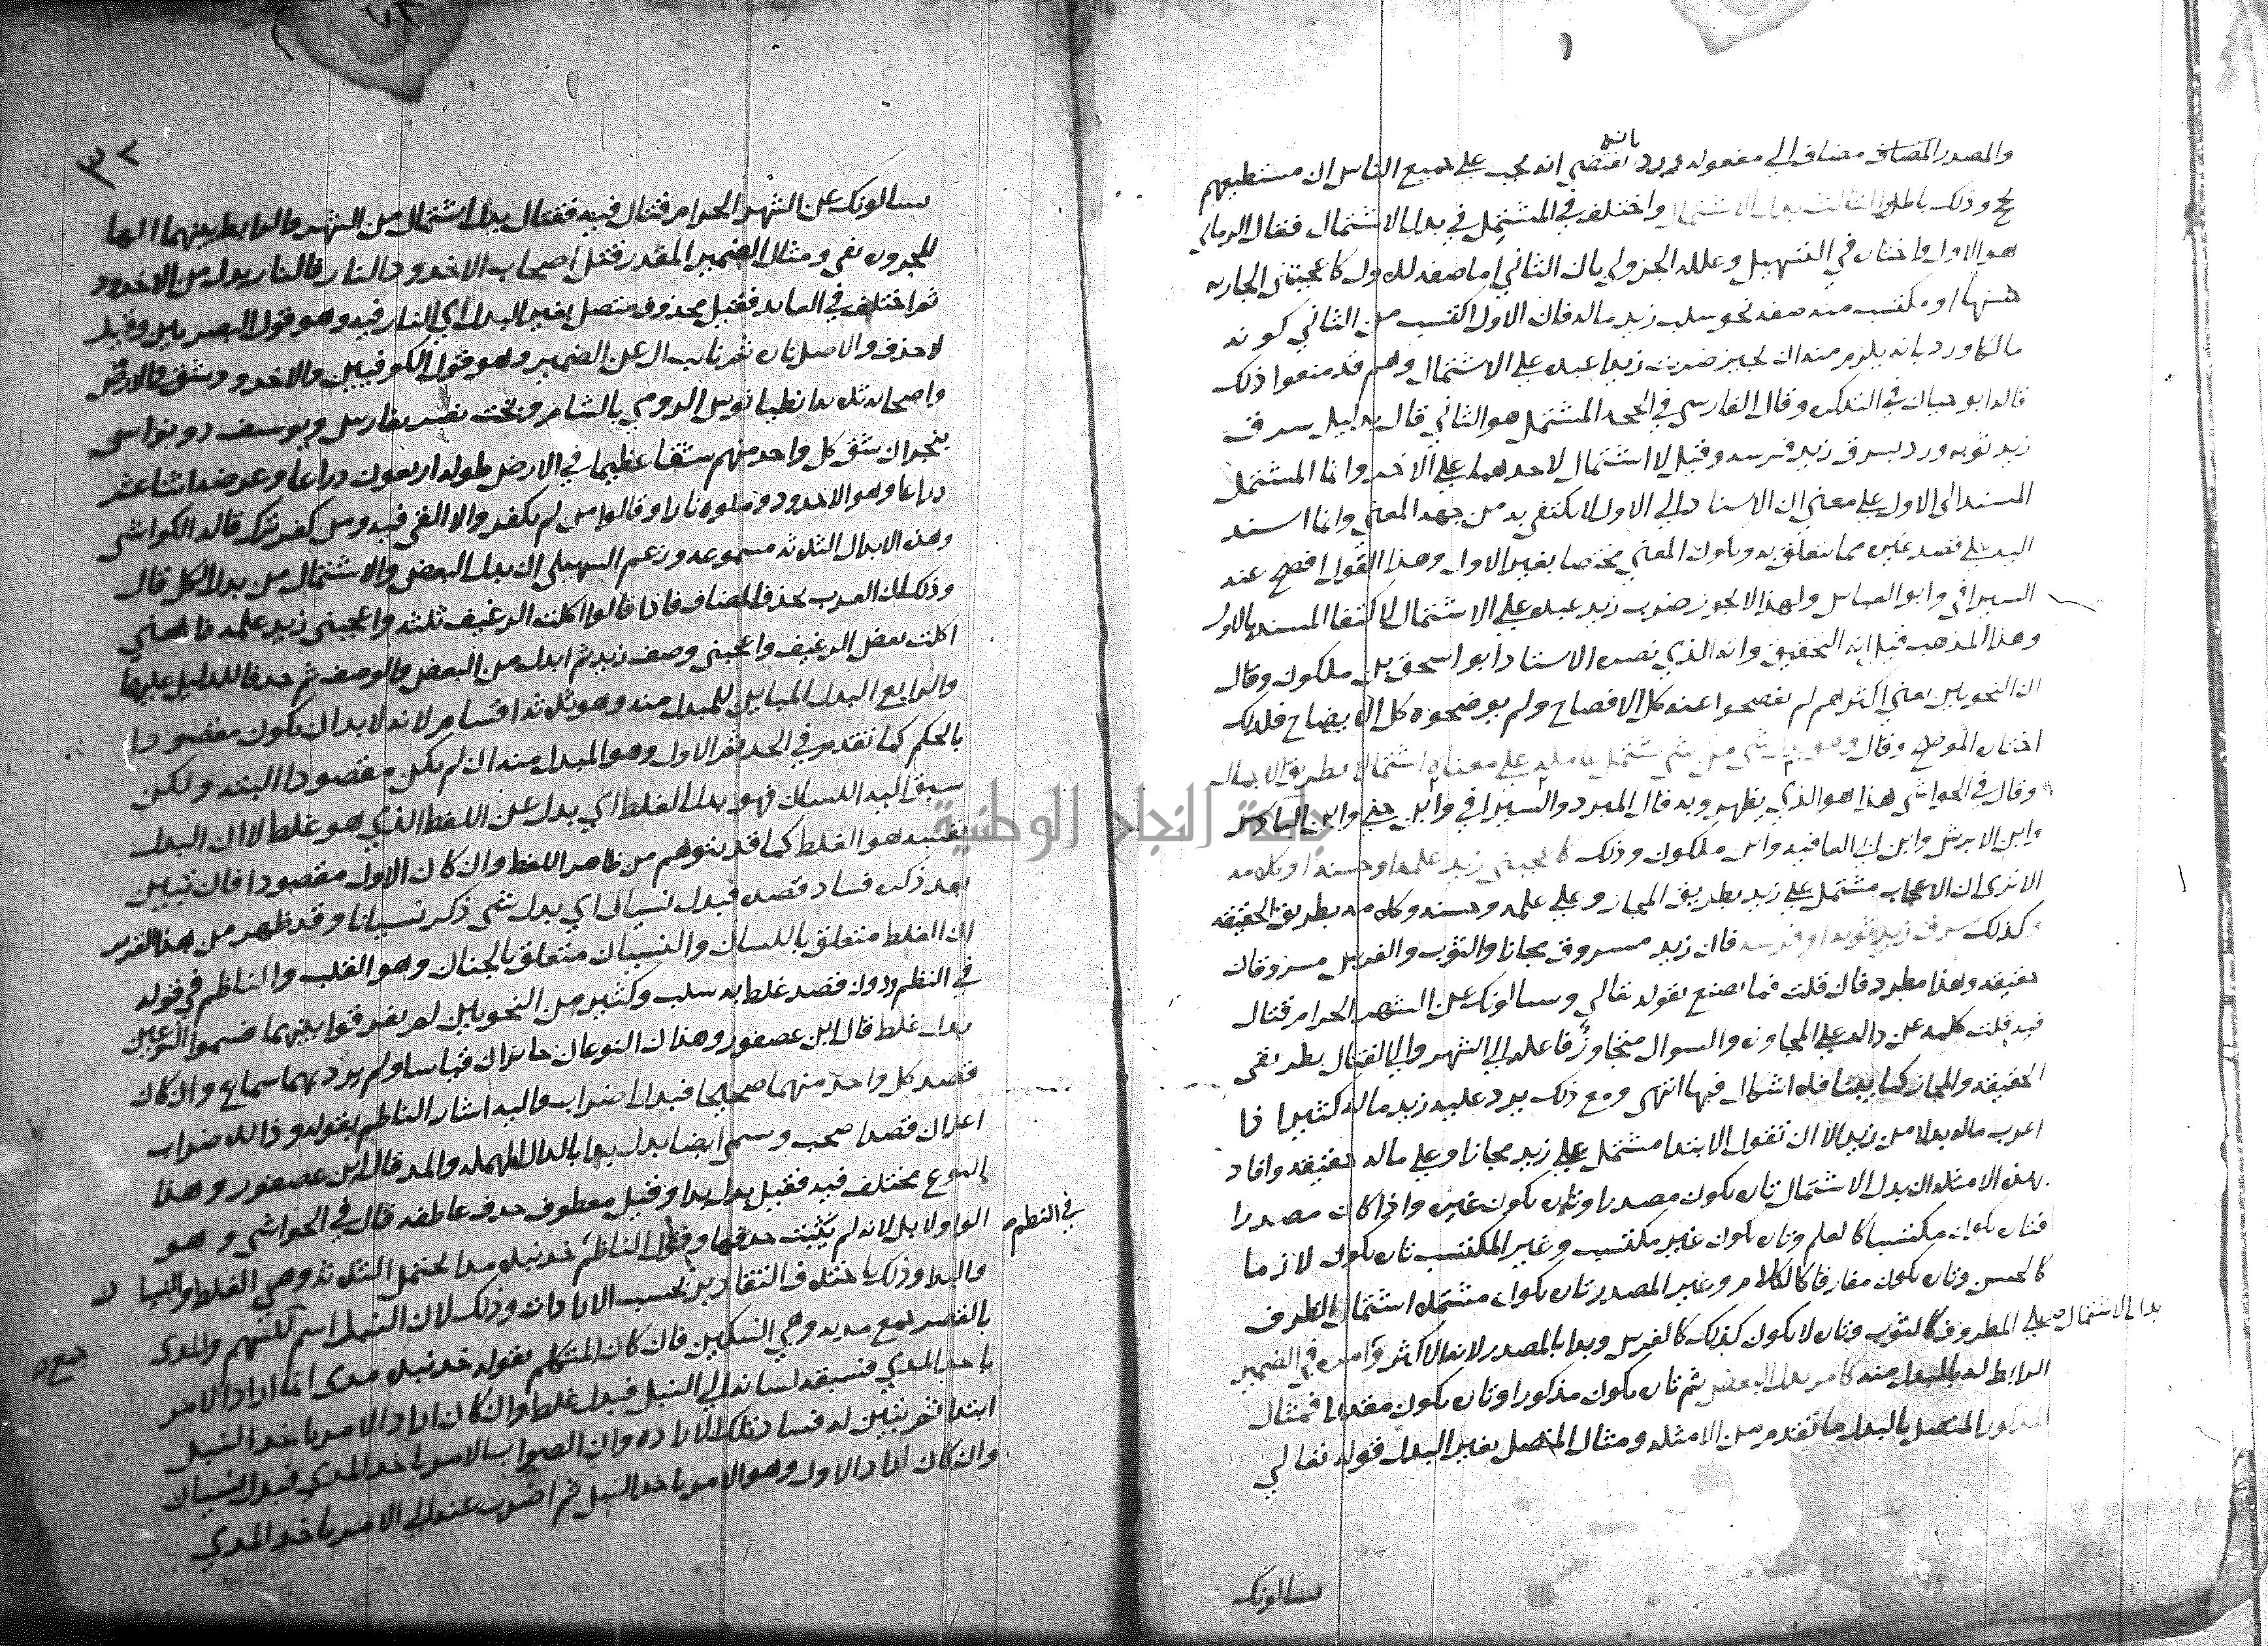 والمصدر المضاف مضاف الي مفعوله ورد بانه يقتضي انه يجب علي جميع الناس ان مستطيعهم
يحج وذلك باطل الثالث بدل الاشتمال واختلف في المشتمل في بدل الاشتمال فقال الرماني
هو الاول واختاره في التسهيل وعلله الجزولي بان الثاني اما صفة للاول كاعجبتني الجارية
حسنها او مكتسب منه صفة نحو سلب زيد ماله فان الاول اكتسب من الثاني كونه
مالكا ورد بانه يلزم منه ان يجيز ضربت زيدا عبده علي الاشتمال وهم قد منعوا ذلك
قاله ابو حيان في النكت وقال الفارسي في الحجة المشتمل هو الثاني قال بدليل سرق
زيد ثوبه ورد بسرق زيد فرسه وقيل لا اشتمال لاحدهما علي الاخر وانما المشتمل
المسند الي الاول علي معني ان الاسناد الي الاول لا يكتفي به من جهة المعني وانما اسند
اليه علي قصد غيره مما يتعلق به ويكون المعني مختصا بغير الاول وهذا القول افصح عند
السيرافي وابو العباس ولهذا لا يجوز ضرب زيد عبده علي الاشتمال لاكتفا المسند بالاول
وهذا المذهب قيل انه التحقيق وانه الذي نصره الاستاذ ابو اسحق بن ملكون وقال
ان النحويين يعني اكثرهم لم يفصحوا عنه كل الافصاح ولم يوضحوه كل الايضاح فلذلك
اختاره الموضح وقال وهو بدل شي من شي مشتمل عامله علي معناه اشتمالا بطريق الاجمال
وقال في الحواشي هذا هو الذي يظهر وبه قال المبرد والسيرافي وابن جني وابن الباذش
وابن الابرش وابن ابي العافية وابن ملكون وذلك كاعجبني زيد علمه او حسنه او كلامه
الا تري ان الاعجاب مشتمل علي زيد بطريق المجاز وعلي علمه وحسنه وكلامه بطريق الحقيقة
وكذلك سرق زيد ثوبه او فرسه فان زيد مسروق مجازا والثوب والفرس مسروقان
حقيقة وهذا مطرد فان قلت فما تصنع بقوله تعالي وسالونك عن الشهر الحرام قتال
فيه قلت كلمة عن دالة علي المجاوزة والسوال متجاوز فاعله الي الشهر والي القتال بطريقي
الحقيقة والمجاز كما بينا فلا اشكال فيها انتهي ومع ذلك يرد عليه زيد ماله كثير اذا
اعرب ماله بدلا من زيد الا ان تقول الابتدا مشتمل علي زيد مجازا وعلي ماله حقيقة وافاد
بهذه الامثلة ان بدل الاشتمال تارة يكون مصدرا وتارة يكون غيره واذا كان مصدرا
فتارة يكون مكتسبا كالعلم وتارة يكون غير مكتسب وغير المكتسب تارة يكون لازما
كالحسن وتارة يكون مفارقا كالكلام وغير المصدر تارة يكون مشتملا اشتمال الظرف
علي المظروف كالثوب وتارة لا يكون كذلك كالفرس وبدا بالمصدر لانه الاكثر وامره في الضمير
بدل الاشتمال صح
الرابط له بالمبدل منه كامر بدل البعض ثم تارة يكون مذكورا وتارة يكون مقدرا فمثال
المذكور المتصل بالبدل ما تقدم من الامثلة ومثال المتصل بغير البدل قوله تعالي
يسالونك
٣٢
يسالونك عن الشهر الحرام قتال فيه فقتال بدل اشتمال من الشهر والرابط بينهما الها
المجرورة بفي ومثال الضمير المقدر قتل اصحاب الاخدود النار فالنار بدل من الاخدود
ثم اختلف في العايد فقيل محذوف متصل بغير البدل اي النار فيه وهو قول البصريين وقيل
لا حذف والاصل ناره ثم نابت ال عن الضمير وهو قول الكوفيين والاخدود شق في الارض
واصحابه ثلاثة انطيانوس الرومي بالشام وبخت نصر بفارس ويوسف ذو نواس
بنجران شق كل واحد منهم شقا عظيما في الارض طوله اربعون ذراعا وعرضه اثنا عشر
ذراعا وهو الاخدود وملوه نارا وقالوا من لم يكفر والا القي فيه ومن كفر ترك قاله الكواشي
وهذه الابدال الثلاثة مسموعة وزعم السهيلي ان بدل البعض والاشتمال من بدل الكل قال
وذلك ان العرب تحذف المضاف فاذا قالوا اكلت الرغيف ثلثه واعجبني زيد علمه فالمعني
اكلت بعض الرغيف واعجبني وصف زيد ثم ابدل من البعض والوصف ثم حذفا للدليل عليهما
والرابع البدل المباين للمبدل منه وهو ثلاثة اقسام لانه لا بد ان يكون مقصودا
بالحكم كما تقدم في الحد ثم الاول وهو المبدل منه ان لم يكن مقصودا البتة ولكن
سبق اليه اللسان فهو بدل الغلط اي بدل عن اللفظ الذي هو غلط لا ان البدل
نفسه هو الغلط كما قد يتوهم من ظاهر اللفظ وان كان الاول مقصودا فان تبين
بعد ذكره فساد قصده فبدل نسيان اي بدل شي ذكر نسيانا وقد ظهر من هذا التقرير
ان الغلط متعلق باللسان والنسيان متعلق بالجنان وهو القلب والناظم في قوله
في النظم ودون قصد غلط به سلب وكثير من النحويين لم يفرقوا بينهما فسموا النوعين
بدل غلط قال ابن عصفور وهذان النوعان جايزان قياسا ولم يرد بهما سماع وان كان
قصد كل واحد منهما صحيحا فبدل اضراب واليه اشار الناظم بقوله وذا للاضراب
اعز ان قصدا صحب وسمي ايضا بدل بدا بالدال المهملة والمد قال ابن عصفور وهذا
النوع مختلف فيه فقيل بدل بدا وقيل معطوف حذف عاطفه قال في الحواشي وهو
الواو لا بل لانه لم يثبت حذفها وقول الناظم خذ نبلا مدا يحتمل الثلاثة وهي الغلط والنسيان
في النظم صح
والبدا وذلك باختلاف التقادير بحسب الارادات وذلك لان النبل اسم للسهم والمدي
جمع
بالقصر جمع مدية وهي السكين فان كان المتكلم بقوله خذ نبلا مدي انما اراد الامر
باخذ المدي فسبقه لسانه الي النبل فبدل غلط وان كان اراد الامر باخذ النبل
ابتدا ثم تبين له فساد تلك الارادة وان الصواب الامر باخذ المدي فبدل نسيان
وان كان اراد الاول وهو الامر باخذ النبل ثم اضرب عنه الي الامر باخذ المدي
جامعة النجاح الوطنية